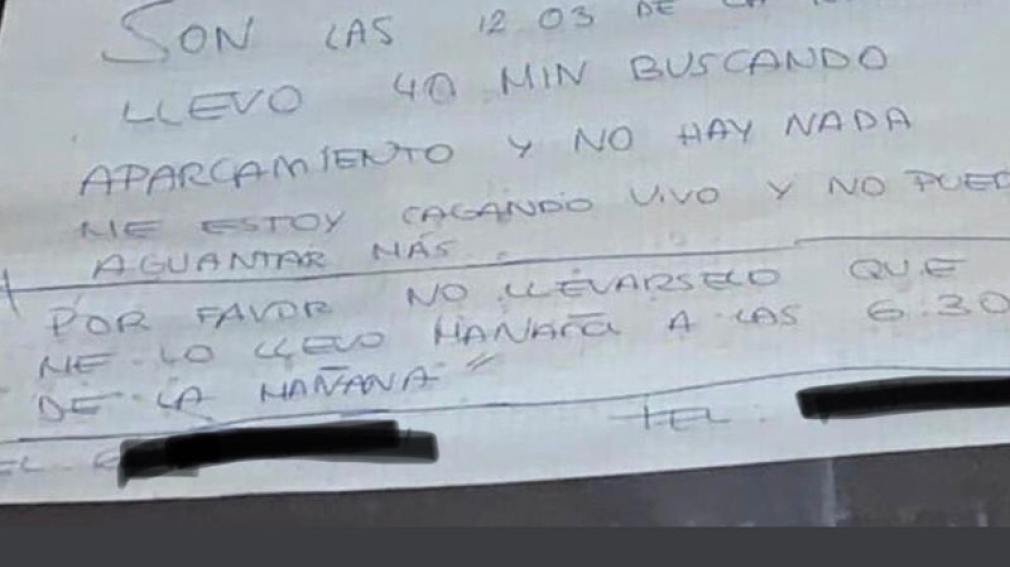 SON LAS 12 03 DE LA
LLEVO 40 MIN BUSCANDO
APARCAMIENTO Y NO HAY NADA
ME ESTOY CAGANDO VIVO Y NO PUED
AGUANTAR MÁS.
POR FAVOR NO LLEVARSELO QUE
ME LO LLEVO MAÑANA A LAS 6.30
DE LA MAÑANA
TEL:
EL 6